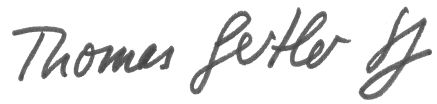 Thomas Gertler SJ